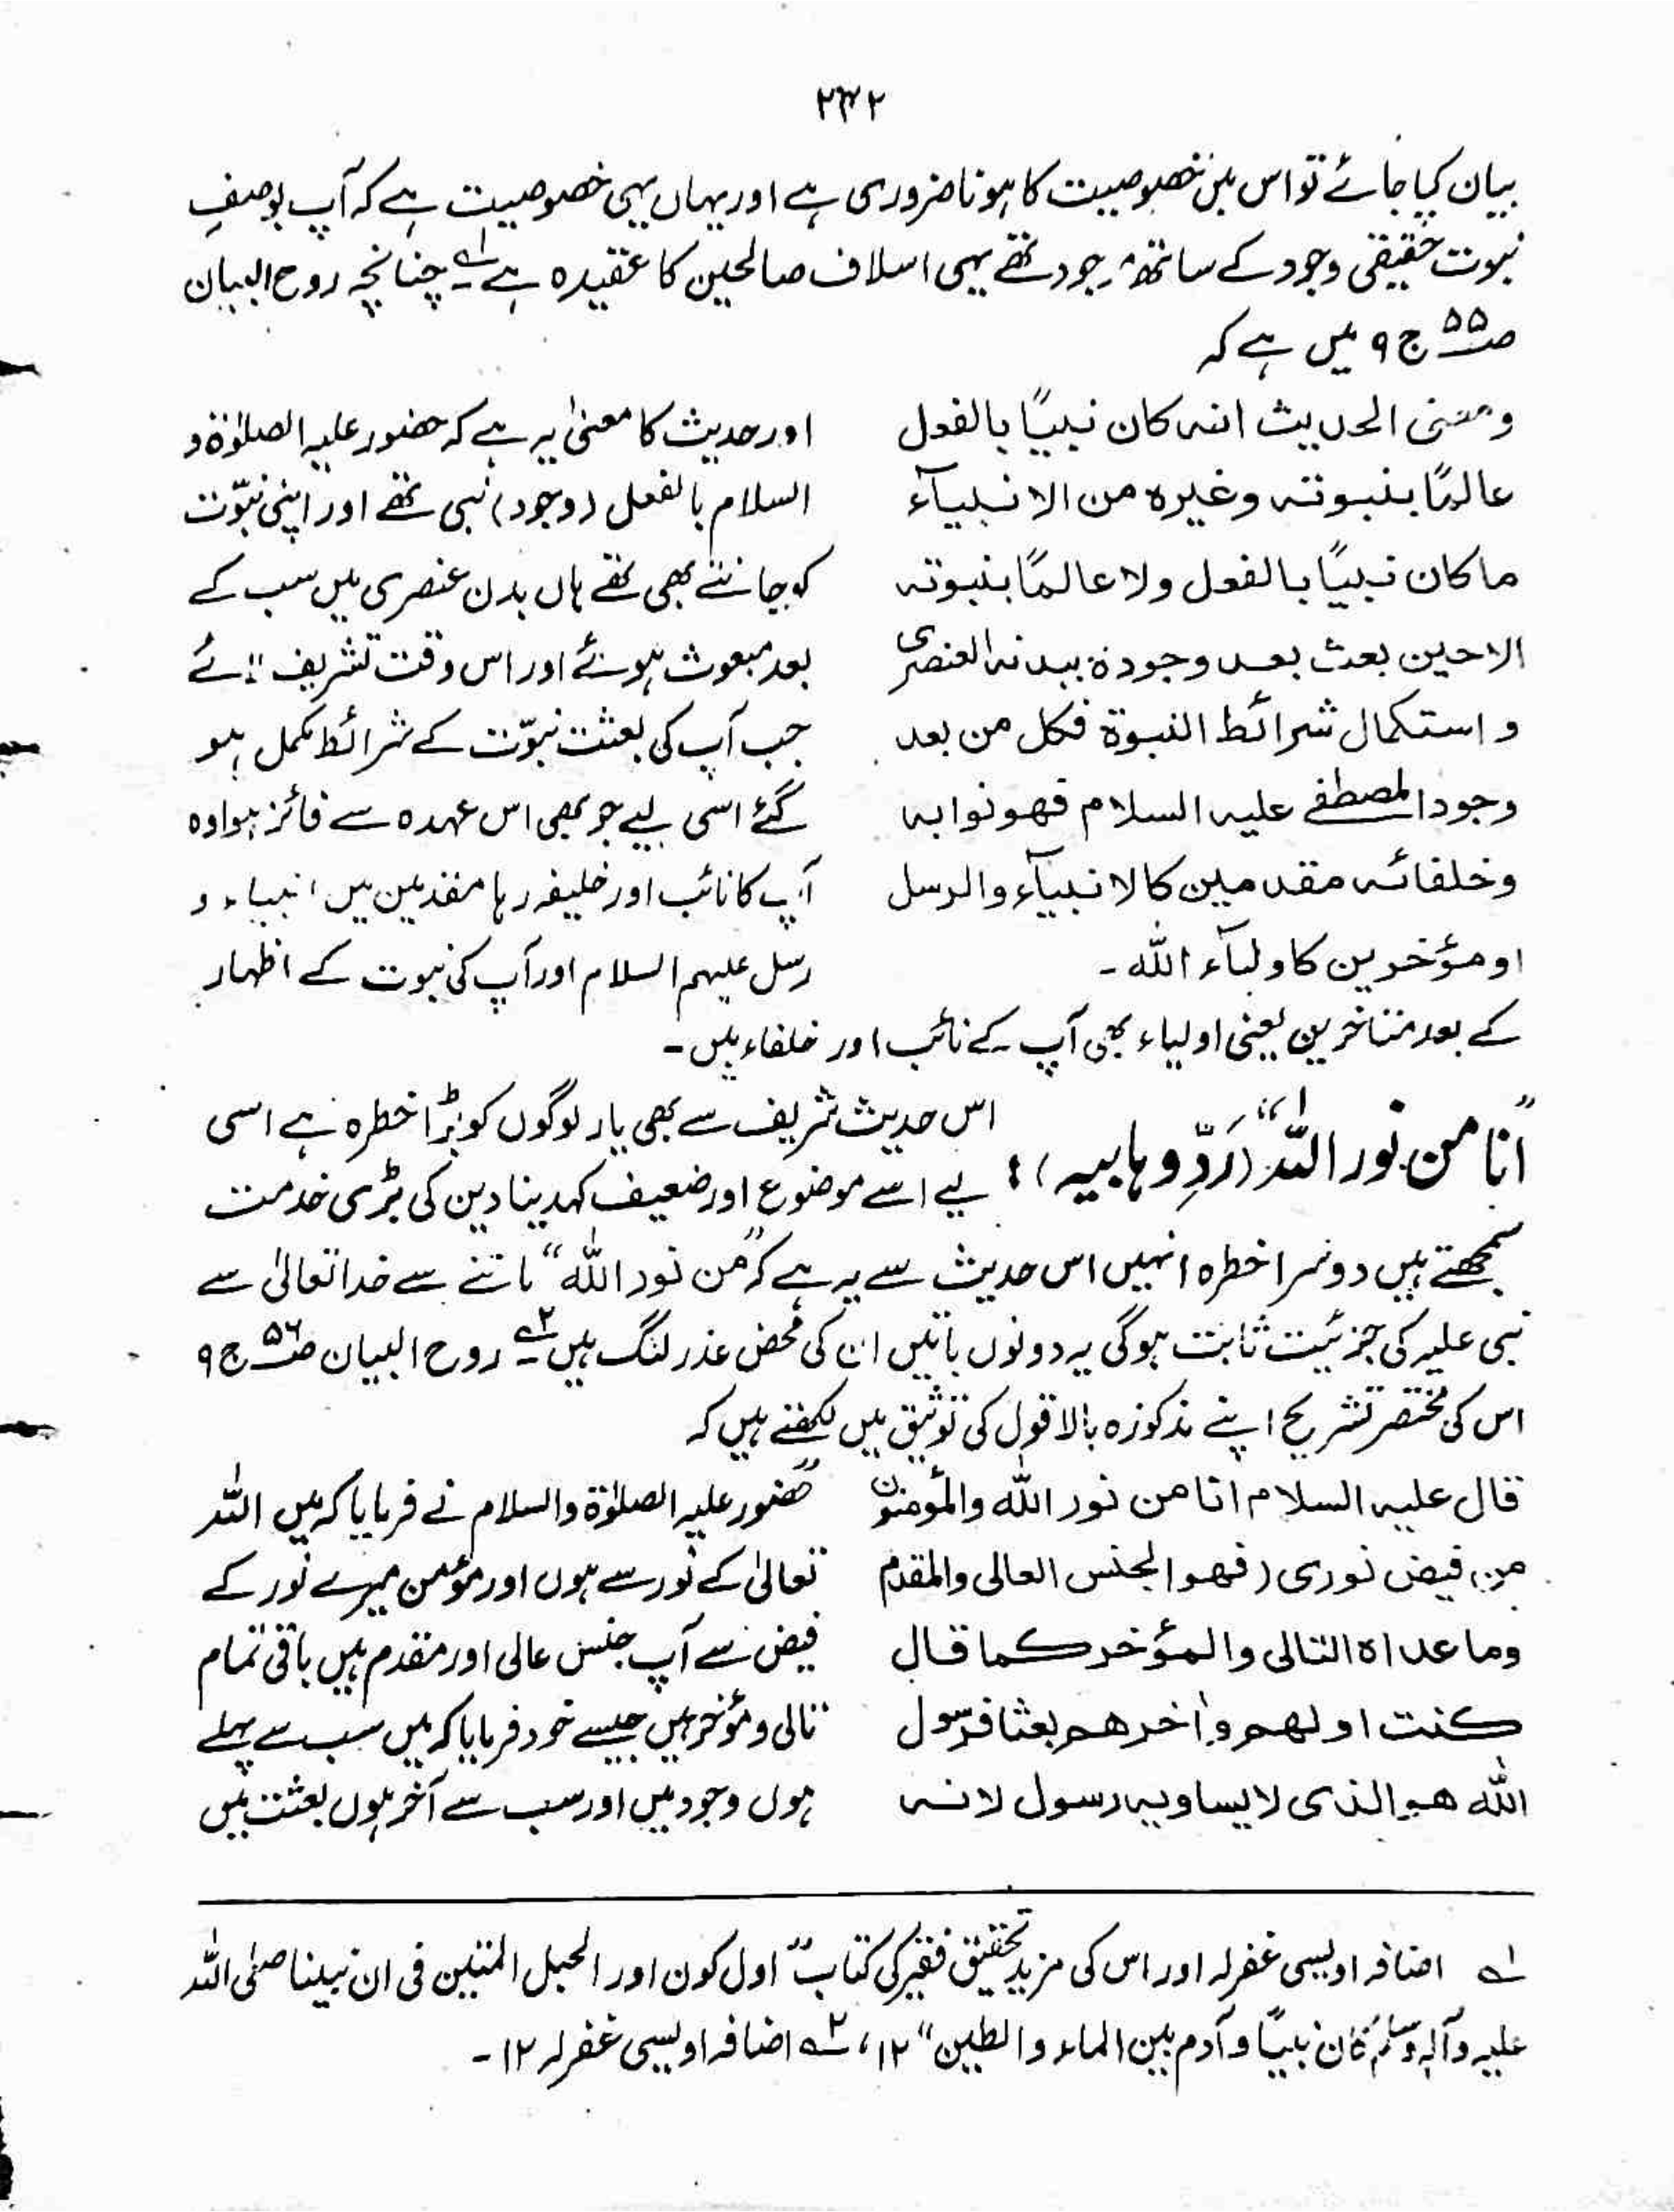 ۲۳۲
بیان کیا جائے تو اس میں خصوصیت کا ہونا ضروری ہے اور یہاں یہی خصوصیت ہے کہ آپ بوصفِ
نبوت حقیقی وجود کے ساتھ موجود تھے یہی اسلاف صالحین کا عقیدہ ہے ۱؎۔ چنانچہ روح البیان
صـ۵۵ ج ۹ میں ہے کہ
ومعنی الحدیث انہ کان نبیًا بالفعل
عالمًا بنبوتہ وغیرہ من الانبیآء
ما کان نبیًا بالفعل ولا عالمًا بنبوتہ
الا حین بعث بعد وجودہ ببدنہ العنصری
و استکمال شرائط النبوۃ فکل من بعد
وجود المصطفے علیہ السلام فھو نوابہ
وخلفائہ مقدمین کالانبیآء والرسل
او مؤخرین کاولیآء اللہ ۔
اور حدیث کا معنیٰ یہ ہے کہ حضور علیہ الصلوٰۃ و
السلام بالفعل (وجود) نبی تھے اور اپنی نبوّت
کو جانتے بھی تھے ہاں بدن عنصری میں سب کے
بعد مبعوث ہوئے اور اس وقت تشریف لائے
جب آپ کی بعثت نبوّت کے شرائط مکمل ہو
گئے اسی لیے جو بھی اس عہدہ سے فائز ہوا وہ
آپ کا نائب اور خلیفہ رہا مقدمین میں انبیاء و
رسل علیہم السلام اور آپ کی نبوت کے اظہار
کے بعد متاخرین یعنی اولیاء بھی آپ کے نائب اور خلفاء ہیں ۔
”انا من نور اللہ“ (رَدِّ وہابیہ) : اس حدیث شریف سے بھی یار لوگوں کو بڑا خطرہ ہے اسی
لیے اسے موضوع اور ضعیف کہدینا دین کی بڑی خدمت
سمجھتے ہیں دوسرا خطرہ انہیں اس حدیث سے یہ ہے کہ ”من نور اللہ“ ماننے سے خدا تعالیٰ سے
نبی علیہ کی جزئیت ثابت ہوگی یہ دونوں باتیں ان کی محض عذر لنگ ہیں ۲؎۔ روح البیان صـ۵۶ ج ۹
اس کی مختصر تشریح اپنے مذکورہ بالا قول کی توثیق میں لکھتے ہیں کہ
قال علیہ السلام انا من نور اللہ والمؤمنون
من فیض نوری (فھو الجنس العالی والمقدم
وما عداہ التالی والمؤخر کما قال
کنت اولھم واٰخرھم بعثا فرسول
اللہ ھو الذی لا یساویہ رسول لانہ
”حضور علیہ الصلوٰۃ والسلام نے فرمایا کہ میں اللہ
تعالیٰ کے نور سے ہوں اور مؤمن میرے نور کے
فیض سے آپ جنس عالی اور مقدم ہیں باقی تمام
تالی و مؤخر ہیں جیسے خود فرمایا کہ میں سب سے پہلے
ہوں وجود میں اور سب سے آخر ہوں بعثت میں
۱؎ اضافہ اویسی غفرلہ اور اس کی مزید تحقیق فقیر کی کتاب ”اول کون اور الحبل المتین فی ان نبینا صلی اللہ
علیہ وآلہ وسلم کان نبیًا وآدم بین الماء والطین“ ۱۲، ۲؎ اضافہ اویسی غفرلہ ۱۲ ۔